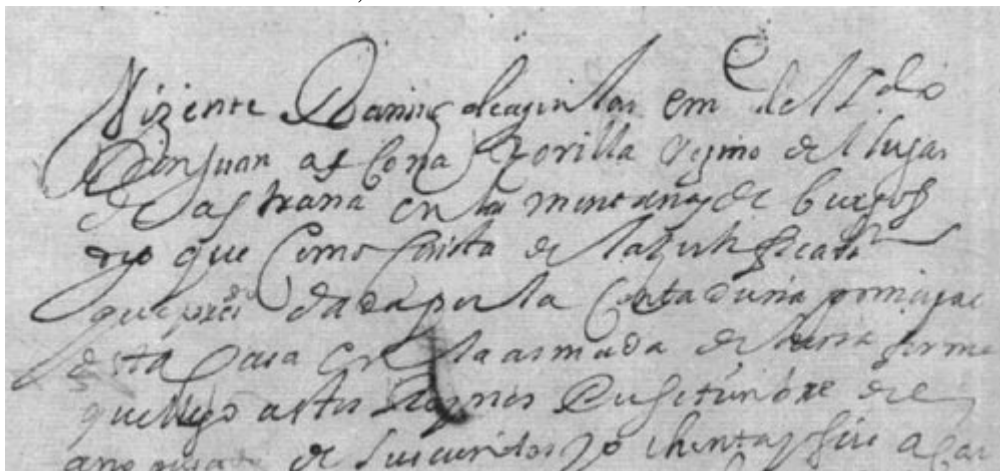 Vizente Ramirez de aguilar en n^e del l^do
Don Juan as Cona Zorilla vezino del lugar
de astrana en las montañas de burgos
digo que Como Consta de la zertificaci^on
que pres^do dada por la Contaduria prinzipal
desta Casa en la armada de tierra firme
que llego a estos Reynos en setienbre de
año pasado de seiscientos y ochenta y seis